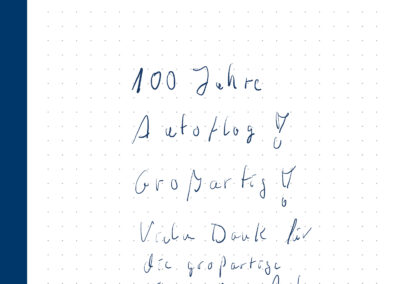 100 Jahre
Autoflog!
Großartig!
Vielen Dank für
die großartige